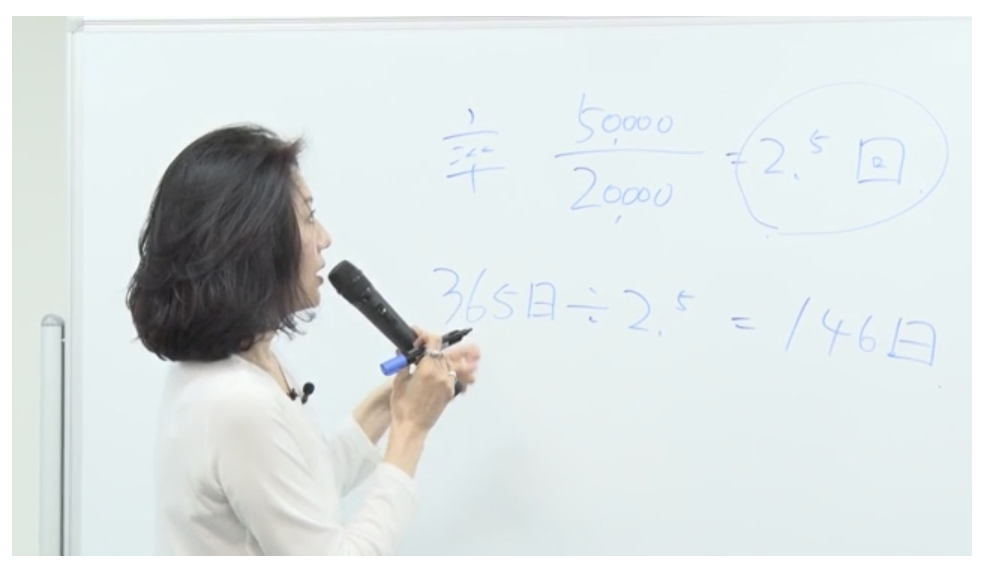 率 50,000/20,000 = 2.5 回
365日÷2.5 = 146日